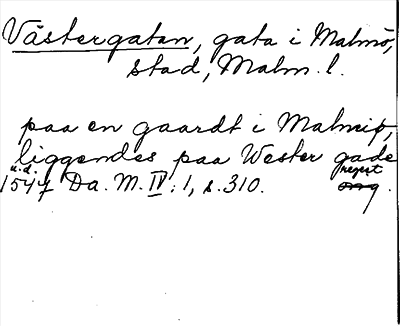 Västergatan, gata i Malmö,
stad, Malm. l.
paa en gaardt i Malmeip,
liggendes paa Wester gade
u.d. regest
1547 Da. M. IV: 1, s. 310. orig.